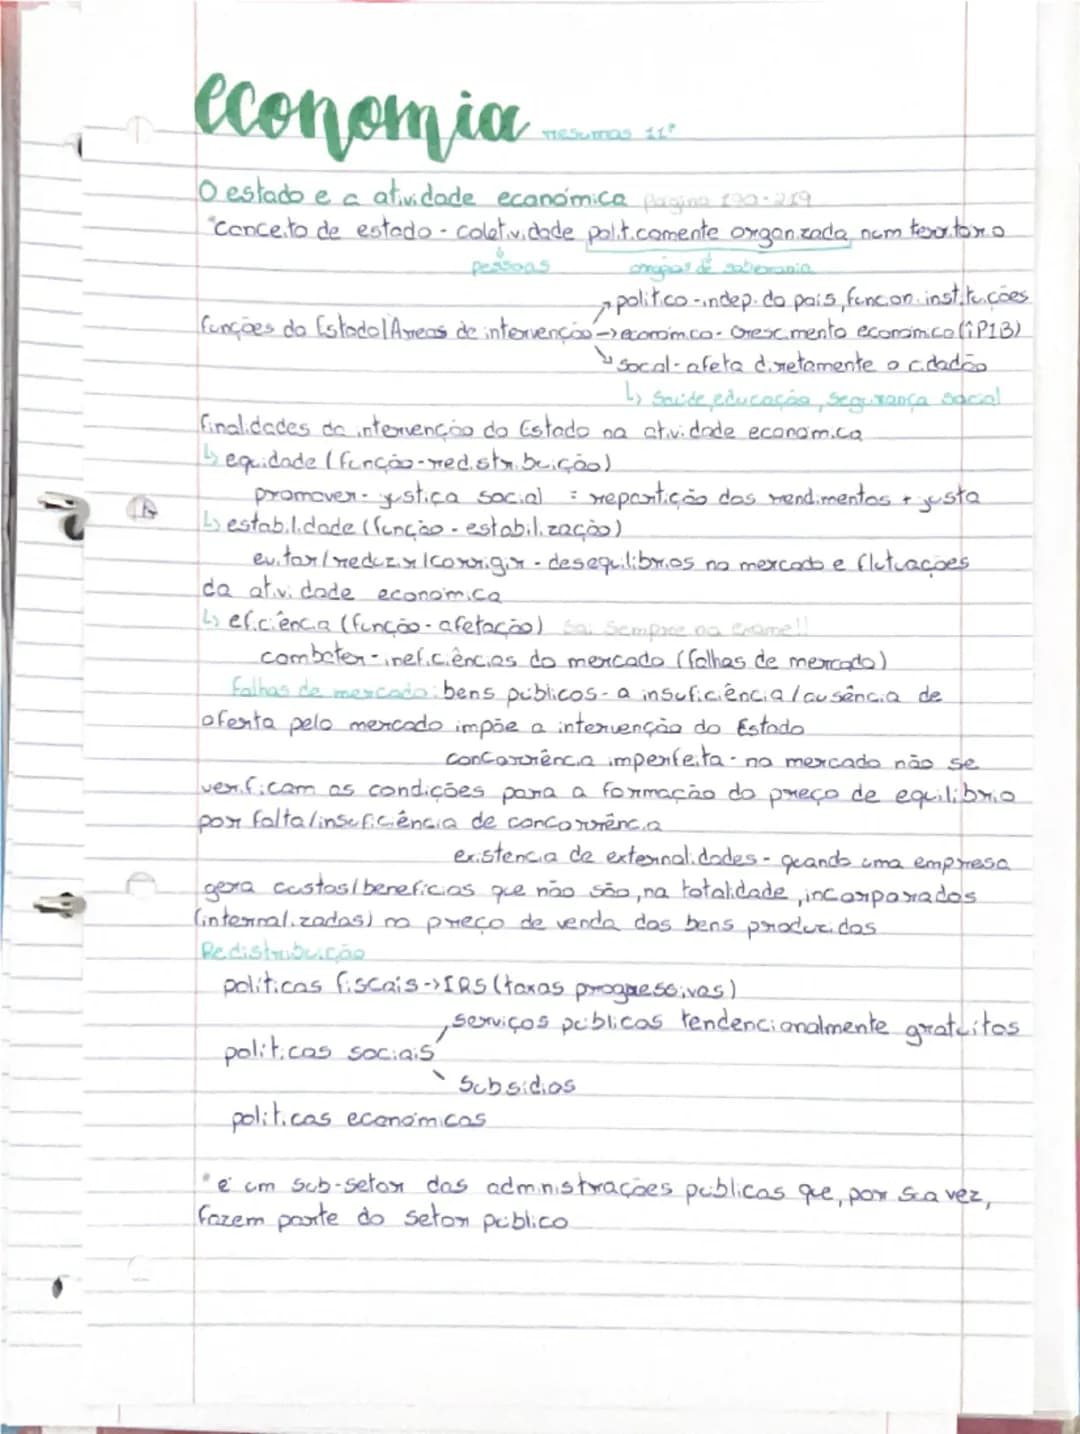 economia resumos 11º
O estado e a atividade económica página 190-219
*Conceito de estado - coletividade politicamente organizada num território
pessoas orgãos de soberania
politico - indep. do pais, funcion. instituições
funções do Estado/Áreas de intervenção → económico - crescimento económico (↑PIB)
social - afeta diretamente o cidadão
↳ Saúde, educação, Segurança social
finalidades da intervenção do Estado na atividade económica
↳ equidade (função - redistribuição)
promover - justiça social = repartição dos rendimentos + justa
↳ estabilidade (função - estabilização)
evitar/reduzir/corrigir - desequilibrios no mercado e flutuações
da atividade económica
↳ eficiência (função - afetação) Sai sempre no exame!!
combater - ineficiências do mercado (falhas de mercado)
falhas de mercado: bens públicos - a insuficiência/ausência de
oferta pelo mercado impõe a intervenção do Estado
concorrência imperfeita - no mercado não se
verificam as condições para a formação do preço de equilibrio
por falta/insuficiência de concorrência
existencia de externalidades - quando uma empresa
gera custos/benefícios que não são, na totalidade, incorporados
(internalizados) no preço de venda dos bens produzidos
Redistribuição
politicas fiscais → IRS (taxas progressivas)
serviços públicos tendencionalmente gratuitos
politicas sociais
Subsidios
politicas económicas
*é um sub-setor das administrações publicas que, por sua vez,
fazem parte do setor público